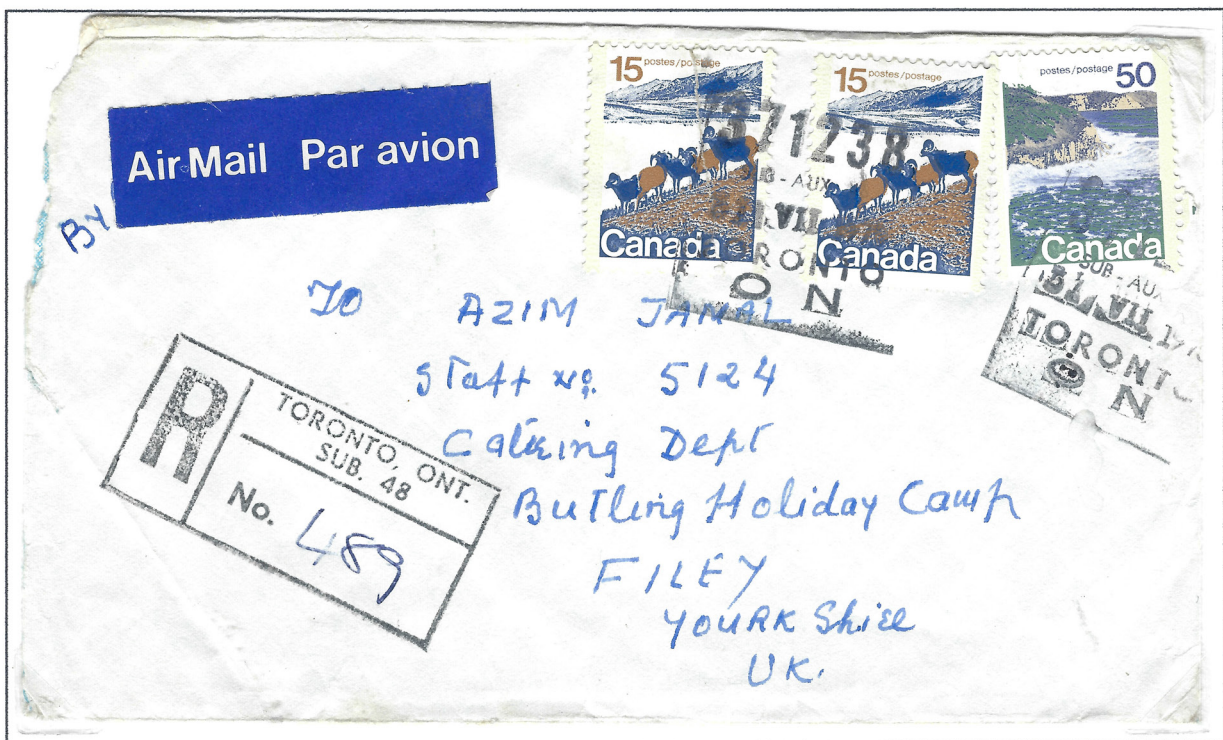 15 postes/postage
Canada
15 postes/postage
Canada
postes/postage 50
Canada
371238
SUB - AUX
31. VII
TORONTO
ON
SUB - AUX
31. VII 197
TORONTO
ON
Air Mail Par avion
BY
TO AZIM JAMAL
Staff No. 5124
Catering Dept
Butling Holiday Camp
FILEY
YOURK Shire
UK.
R
TORONTO, ONT.
SUB. 48
No. 489